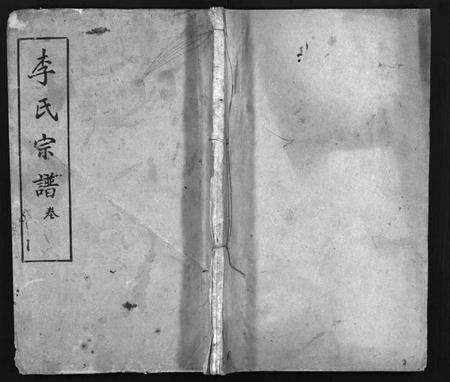 李氏宗譜
卷